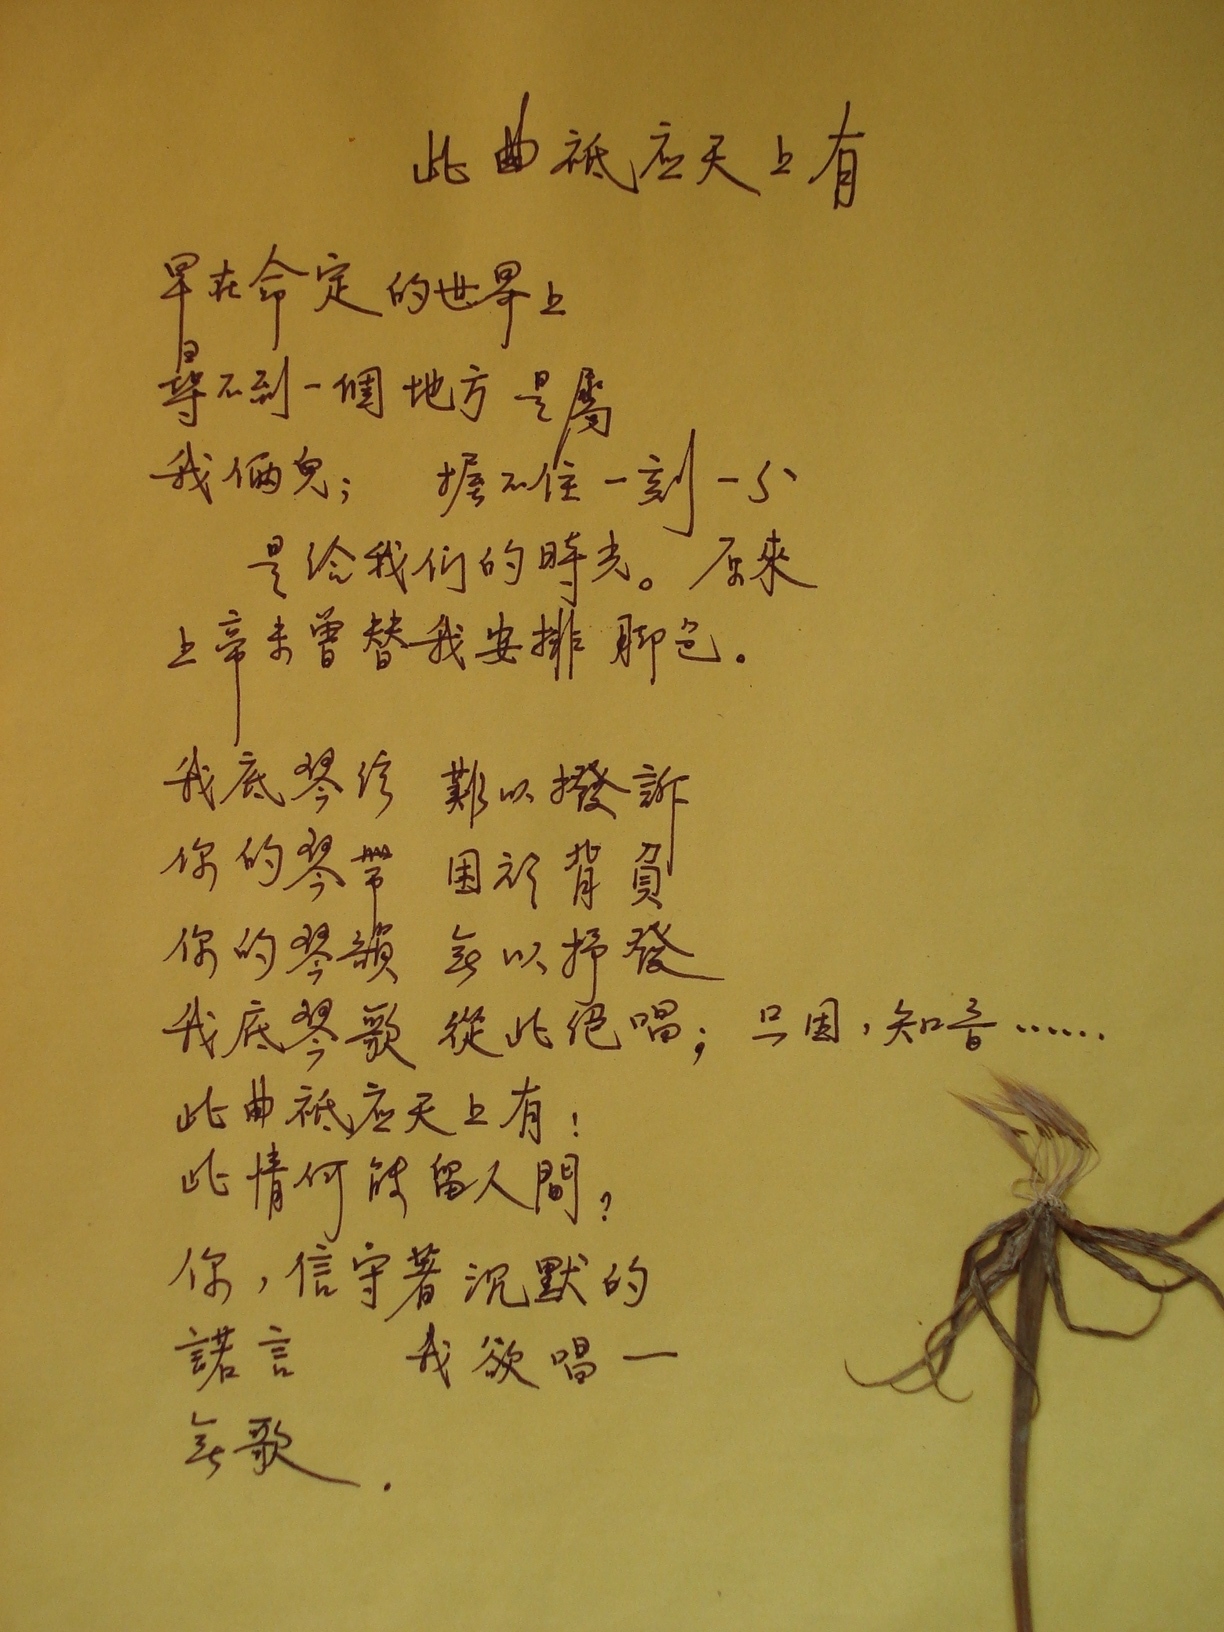 此曲祗应天上有
早在命定的世界上
尋不到一個地方是屬
我倆兒； 握不住一刻一分
是给我们的時光。原來
上帝未曾替我安排脚色。
我底琴弦 難以撥訴
你的琴帶 困於背負
你的琴韻 無以抒發
我底琴歌 從此绝唱； 只因，知音……
此曲祗应天上有！
此情何能留人間？
你，信守著沉默的
諾言 我欲唱一
無歌．